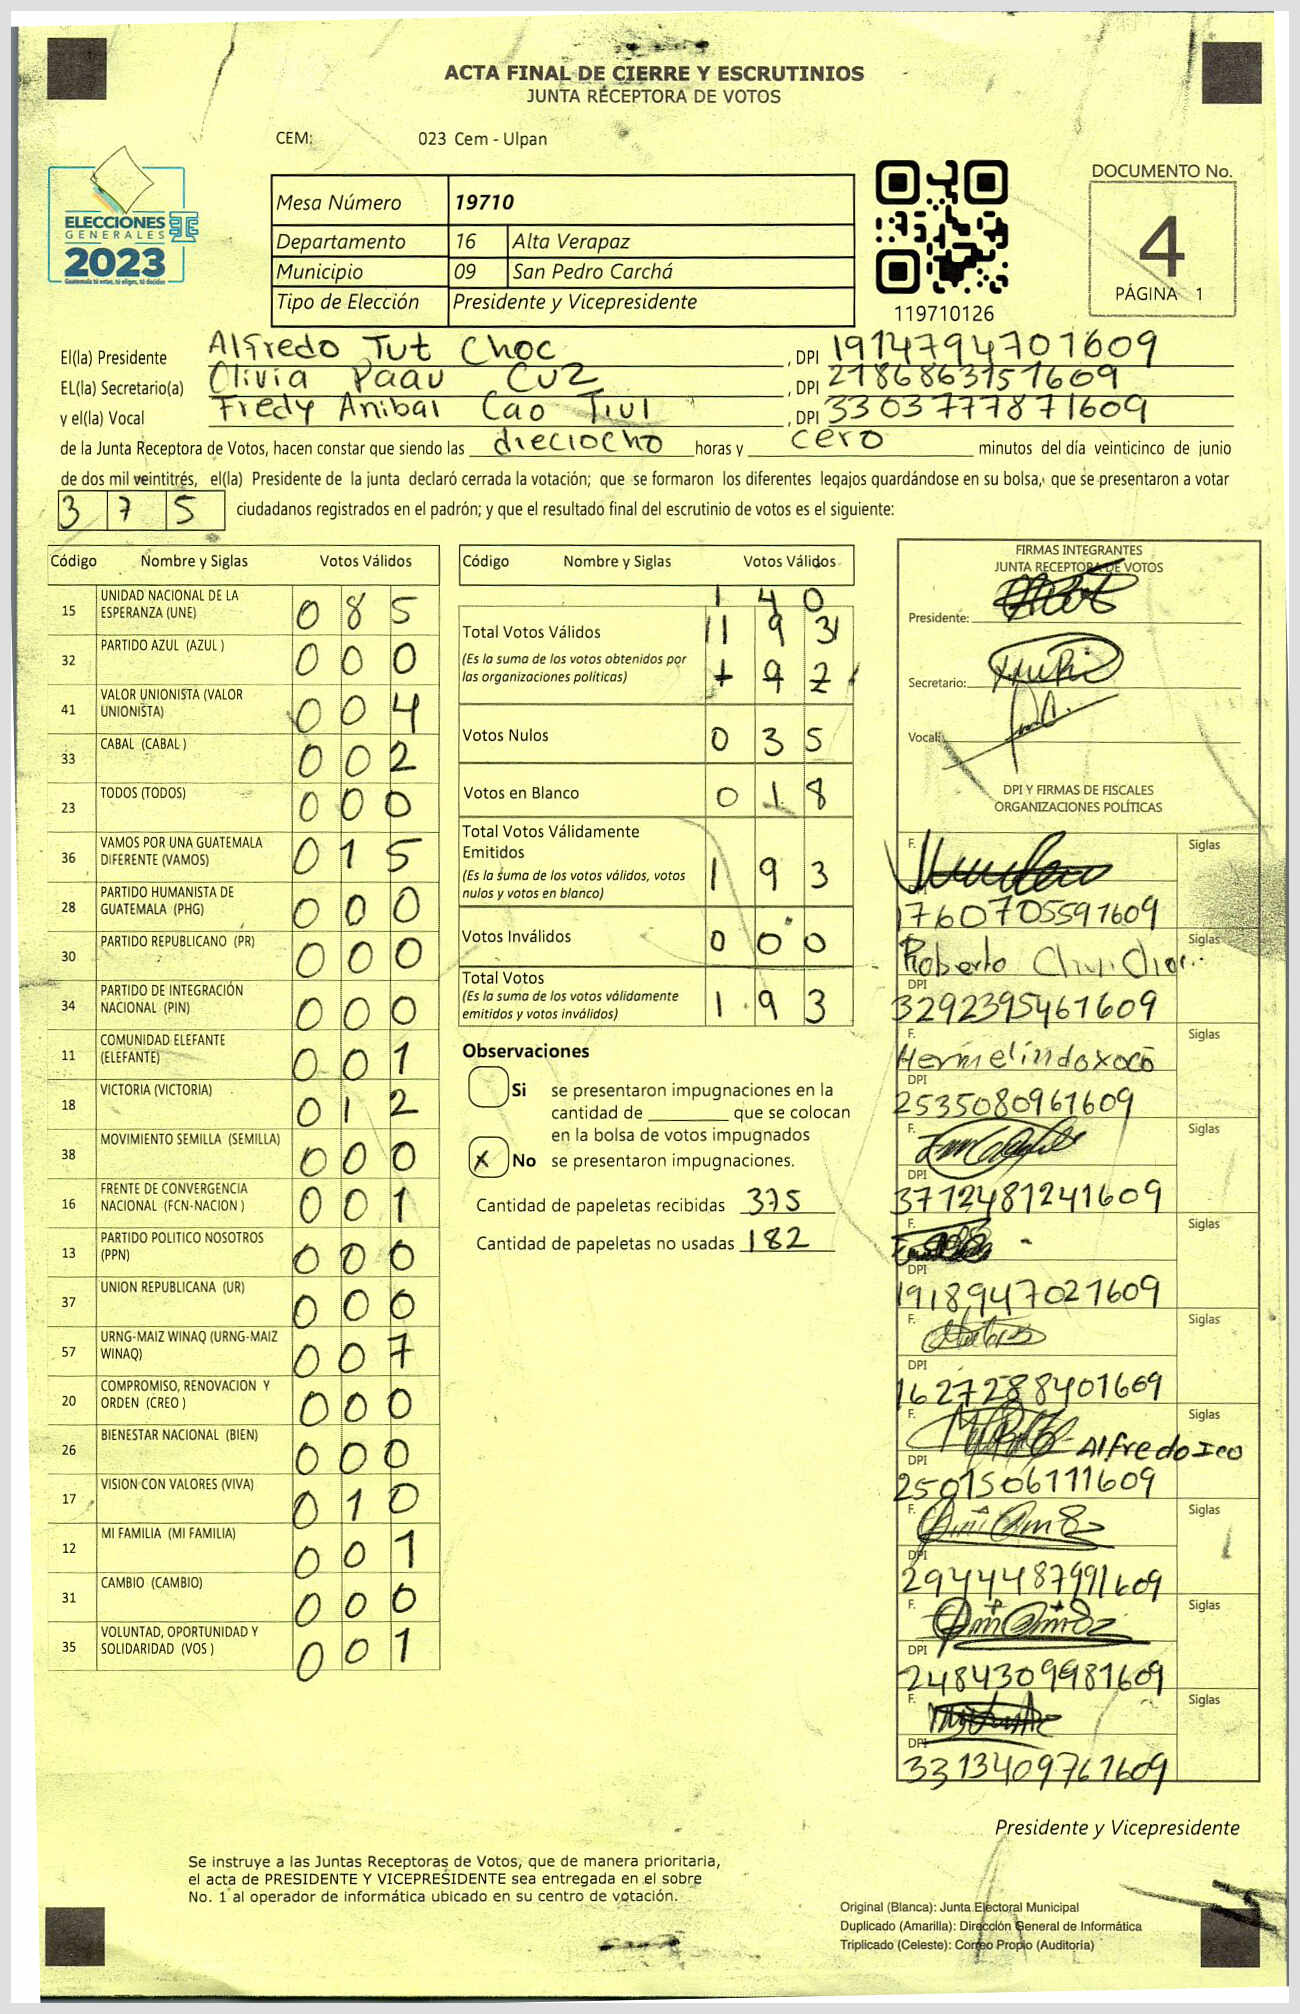 ACTA FINAL DE CIERRE Y ESCRUTINIOS
JUNTA RECEPTORA DE VOTOS
CEM: 023 Cem - Ulpan
ELECCIONES
GENERALES
2023
Guatemala tú votas, tú eliges, tú decides
Mesa Número 19710
Departamento 16 Alta Verapaz
Municipio 09 San Pedro Carchá
Tipo de Elección Presidente y Vicepresidente
119710126
DOCUMENTO No.
4
PÁGINA 1
El(la) Presidente Alfredo Tut Choc , DPI 1914794701609
EL(la) Secretario(a) Olivia Paau Cuz , DPI 2186863151609
y el(la) Vocal Fredy Anibal Cao Tiul , DPI 3303777871609
de la Junta Receptora de Votos, hacen constar que siendo las dieciocho horas y cero minutos del día veinticinco de junio
de dos mil veintitrés, el(la) Presidente de la junta declaró cerrada la votación; que se formaron los diferentes legajos guardándose en su bolsa, que se presentaron a votar
375 ciudadanos registrados en el padrón; y que el resultado final del escrutinio de votos es el siguiente:
Código Nombre y Siglas Votos Válidos
15 UNIDAD NACIONAL DE LA ESPERANZA (UNE) 085
32 PARTIDO AZUL (AZUL ) 000
41 VALOR UNIONISTA (VALOR UNIONISTA) 004
33 CABAL (CABAL ) 002
23 TODOS (TODOS) 000
36 VAMOS POR UNA GUATEMALA DIFERENTE (VAMOS) 015
28 PARTIDO HUMANISTA DE GUATEMALA (PHG) 000
30 PARTIDO REPUBLICANO (PR) 000
34 PARTIDO DE INTEGRACIÓN NACIONAL (PIN) 000
11 COMUNIDAD ELEFANTE (ELEFANTE) 001
18 VICTORIA (VICTORIA) 012
38 MOVIMIENTO SEMILLA (SEMILLA) 000
16 FRENTE DE CONVERGENCIA NACIONAL (FCN-NACION ) 001
13 PARTIDO POLITICO NOSOTROS (PPN) 000
37 UNION REPUBLICANA (UR) 000
57 URNG-MAIZ WINAQ (URNG-MAIZ WINAQ) 007
20 COMPROMISO, RENOVACION Y ORDEN (CREO ) 000
26 BIENESTAR NACIONAL (BIEN) 000
17 VISION CON VALORES (VIVA) 010
12 MI FAMILIA (MI FAMILIA) 001
31 CAMBIO (CAMBIO) 000
35 VOLUNTAD, OPORTUNIDAD Y SOLIDARIDAD (VOS ) 001
Código Nombre y Siglas Votos Válidos
140
Total Votos Válidos 193
(Es la suma de los votos obtenidos por
las organizaciones políticas)
Votos Nulos 035
Votos en Blanco 018
Total Votos Válidamente
Emitidos
(Es la suma de los votos válidos, votos
nulos y votos en blanco) 193
Votos Inválidos 000
Total Votos
(Es la suma de los votos válidamente
emitidos y votos inválidos) 193
Observaciones
Si se presentaron impugnaciones en la
cantidad de ________ que se colocan
en la bolsa de votos impugnados
X No se presentaron impugnaciones.
Cantidad de papeletas recibidas 375
Cantidad de papeletas no usadas 182
FIRMAS INTEGRANTES
JUNTA RECEPTORA DE VOTOS
Presidente:
Secretario:
Vocal:
DPI Y FIRMAS DE FISCALES
ORGANIZACIONES POLÍTICAS
F. Siglas
1760705591609
Siglas
Roberto
DPI
3292395461609
F. Siglas
Hermelindoxoco
DPI
2535080961609
F. Siglas
DPI
3712481241609
F. Siglas
DPI
1918947021609
F. Siglas
DPI
1627288401609
F. Siglas
Alfredo Ico
DPI
2501506111609
F. Siglas
DPI
2944487991609
F. Siglas
DPI
2484309981609
F. Siglas
DPI
3313409761609
Presidente y Vicepresidente
Se instruye a las Juntas Receptoras de Votos, que de manera prioritaria,
el acta de PRESIDENTE Y VICEPRESIDENTE sea entregada en el sobre
No. 1 al operador de informática ubicado en su centro de votación.
Original (Blanca): Junta Electoral Municipal
Duplicado (Amarilla): Dirección General de Informática
Triplicado (Celeste): Correo Propio (Auditoria)